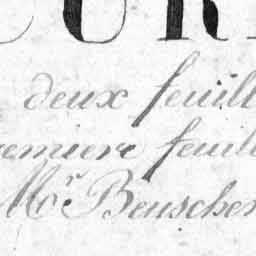 deux feuill
remiere feuill
Mr. Beuscher